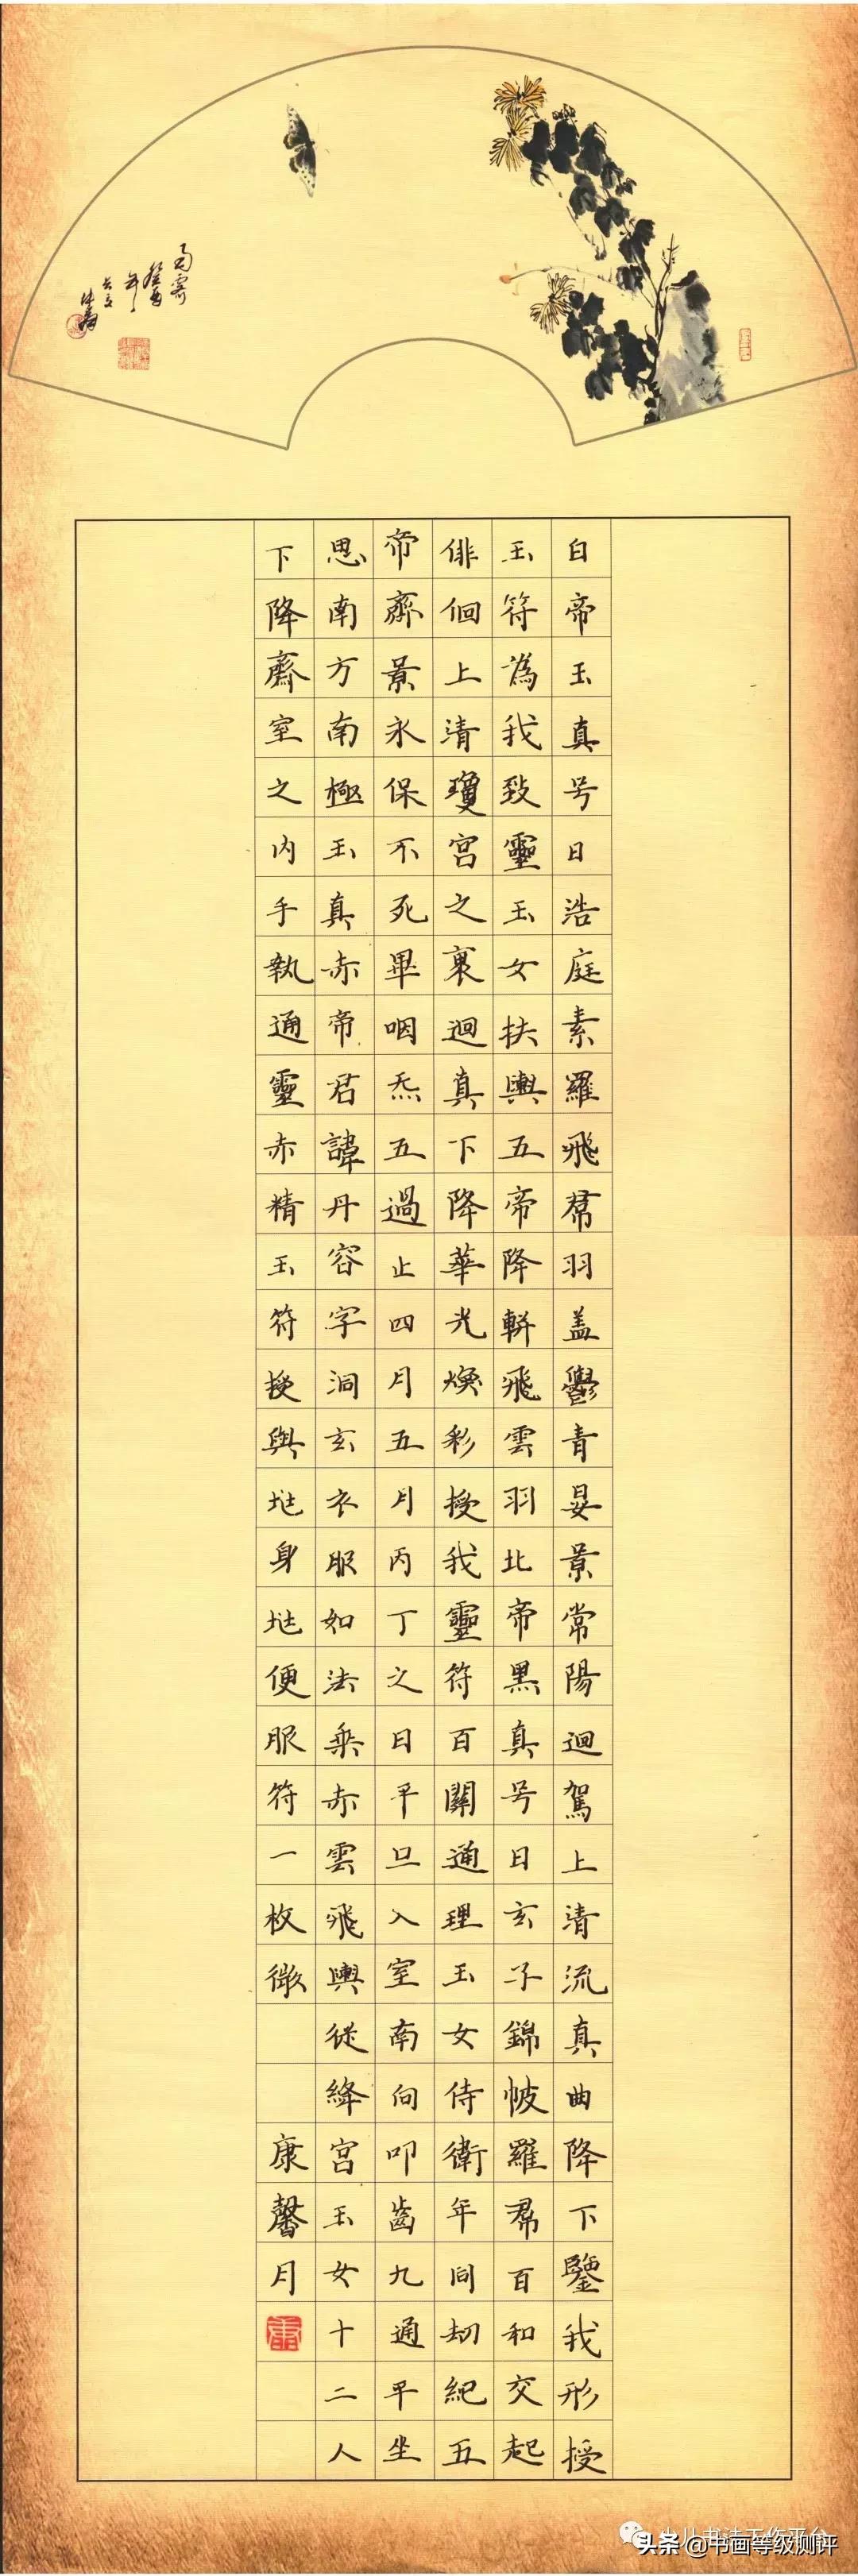 白帝玉真号曰浩庭素羅飛帬羽盖鬱青晏景常陽迴駕上清流真曲降下鑒我形授
玉符為我致靈玉女扶輿五帝降軿飛雲羽北帝黒真号曰玄子錦帔羅帬百和交起
俳佪上清瓊宮之裏迴真下降華光煥彩授我靈符百關通理玉女侍衛年同劫紀五
帝齋景永保不死畢咽炁五過止四月五月丙丁之日平旦入室南向叩齒九通平坐
思南方南極玉真赤帝君諱丹容字洞玄衣服如法乘赤雲飛輿從絳宮玉女十二人
下降齋室之内手執通靈赤精玉符授與兆身兆便服符一枚微
康馨月
头条 @书画等级测评